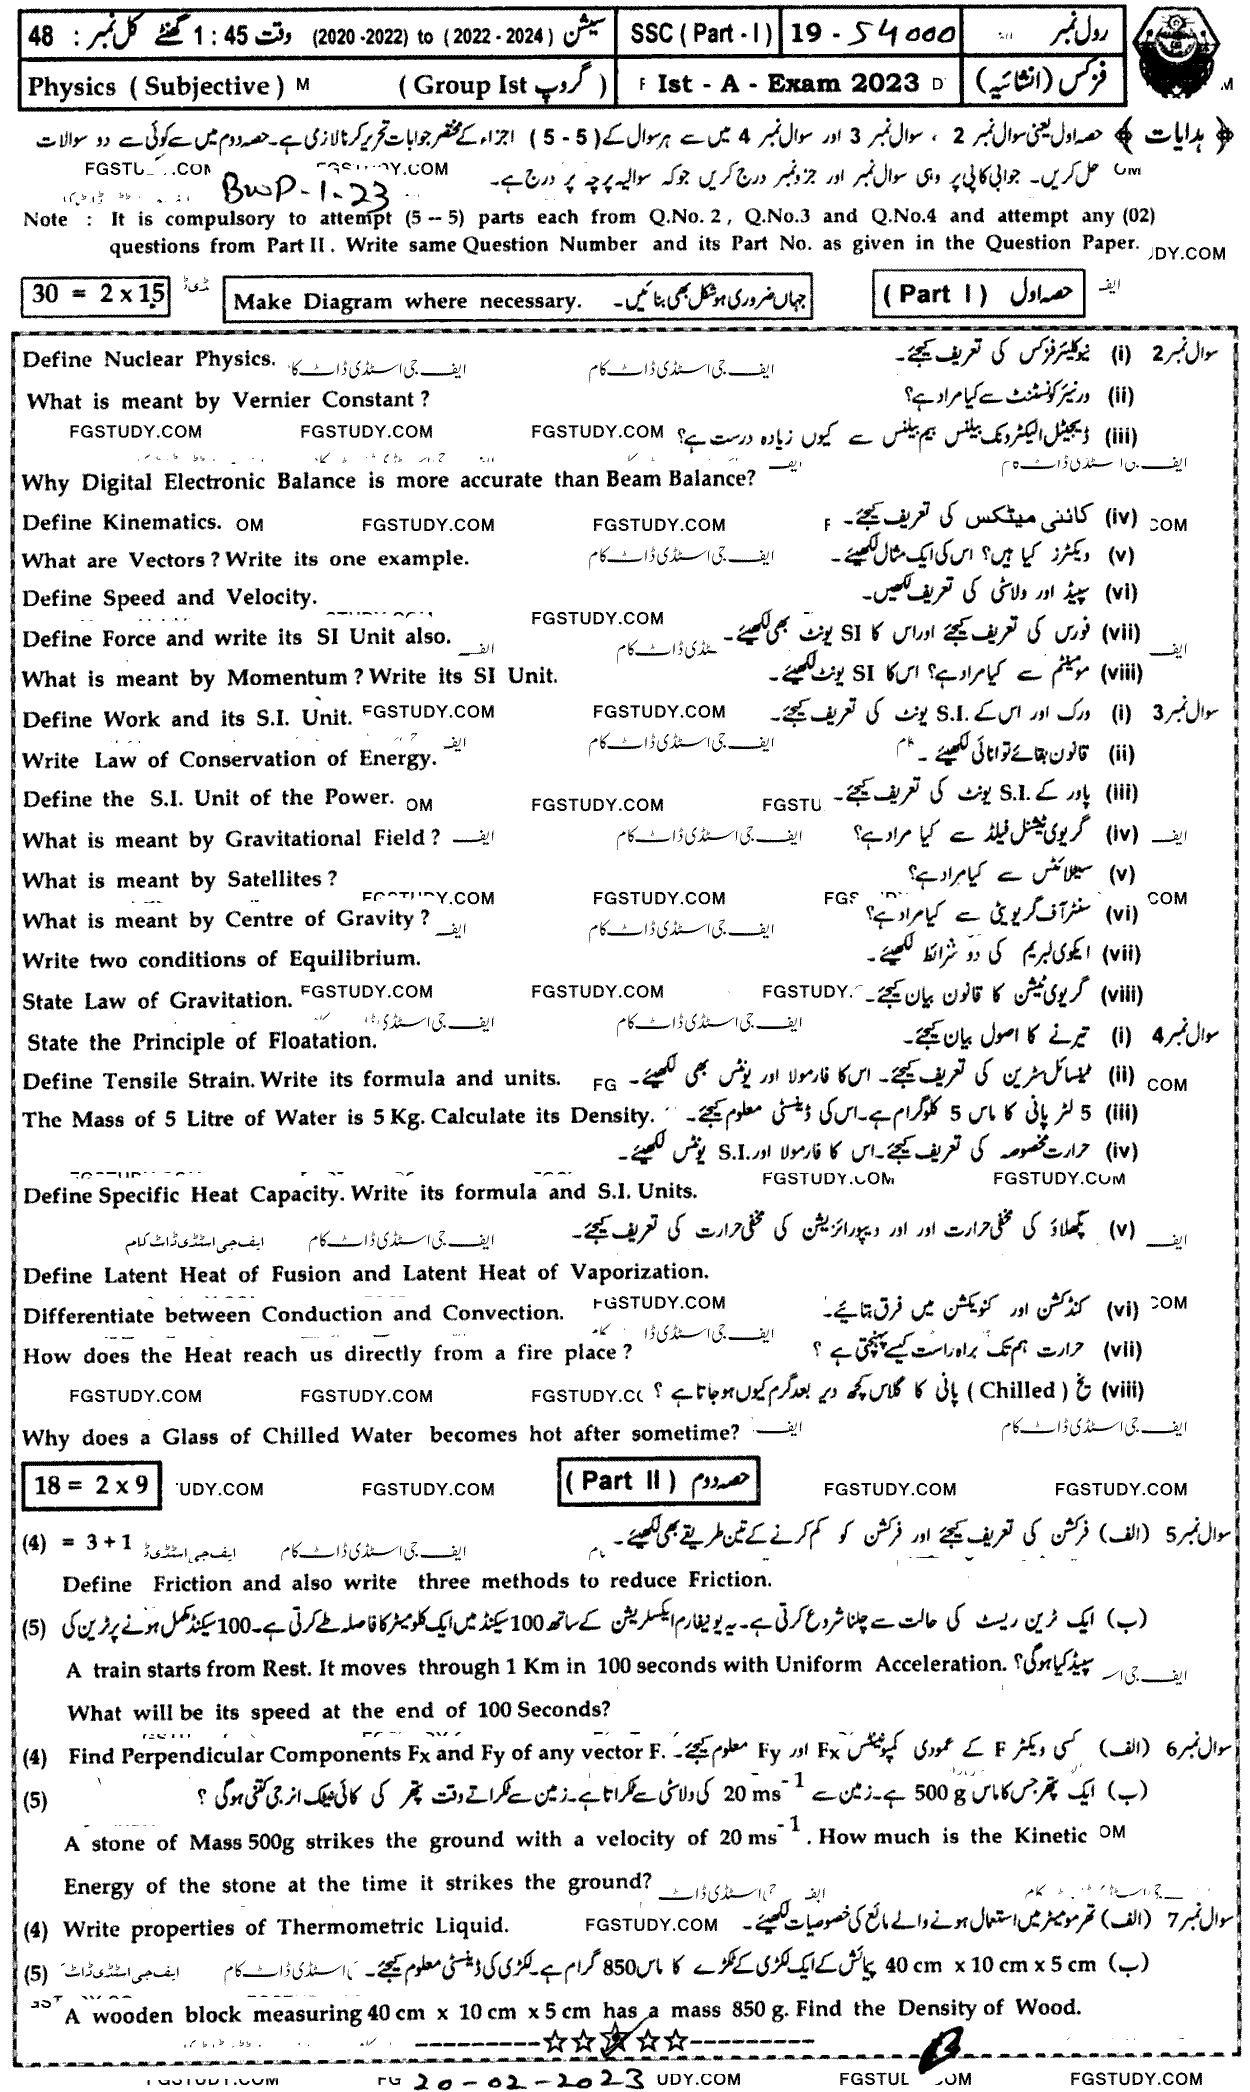 رول نمبر 19 - 54000 SSC ( Part - I ) سیشن (2020 -2022) to (2022 - 2024) وقت 1 : 45 گھنٹے کل نمبر : 48
فزکس (انشائیہ) Ist - A - Exam 2023 ( Group Ist گروپ ) Physics ( Subjective ) M
﴿ ہدایات ﴾ حصہ اول یعنی سوال نمبر 2 ، سوال نمبر 3 اور سوال نمبر 4 میں سے ہر سوال کے ( 5 - 5 ) اجزاء کے مختصر جوابات تحریر کرنا لازمی ہے۔ حصہ دوم میں سے کوئی سے دو سوالات
حل کریں۔ جوابی کاپی پر وہی سوال نمبر اور جزو نمبر درج کریں جو کہ سوالیہ پرچہ پر درج ہے۔
BWP-1-23
Note : It is compulsory to attempt (5 -- 5) parts each from Q.No. 2, Q.No.3 and Q.No.4 and attempt any (02)
questions from Part II. Write same Question Number and its Part No. as given in the Question Paper.
حصہ اول ( Part I ) جہاں ضروری ہو شکل بھی بنائیں۔ Make Diagram where necessary. 30 = 2 x 15
سوال نمبر 2 (i) نیوکلیئر فزکس کی تعریف کیجئے۔ Define Nuclear Physics.
(ii) ورنیئر کونسٹنٹ سے کیا مراد ہے؟ What is meant by Vernier Constant ?
(iii) ڈیجیٹل الیکٹرونک بیلنس بیم بیلنس سے کیوں زیادہ درست ہے؟
Why Digital Electronic Balance is more accurate than Beam Balance?
(iv) کائنی میٹکس کی تعریف کیجئے۔ Define Kinematics.
(v) ویکٹرز کیا ہیں؟ اس کی ایک مثال لکھیئے۔ What are Vectors ? Write its one example.
(vi) سپیڈ اور ولاسٹی کی تعریف لکھیں۔ Define Speed and Velocity.
(vii) فورس کی تعریف کیجئے اور اس کا SI یونٹ بھی لکھیئے۔ Define Force and write its SI Unit also.
(viii) مومینٹم سے کیا مراد ہے؟ اس کا SI یونٹ لکھیئے۔ What is meant by Momentum ? Write its SI Unit.
سوال نمبر 3 (i) ورک اور اس کے S.I. یونٹ کی تعریف کیجئے۔ Define Work and its S.I. Unit.
(ii) قانون بقائے توانائی لکھیئے۔ Write Law of Conservation of Energy.
(iii) پاور کے S.I. یونٹ کی تعریف کیجئے۔ Define the S.I. Unit of the Power.
(iv) گریوی ٹیشنل فیلڈ سے کیا مراد ہے؟ What is meant by Gravitational Field ?
(v) سیٹلائٹس سے کیا مراد ہے؟ What is meant by Satellites ?
(vi) سنٹر آف گریویٹی سے کیا مراد ہے؟ What is meant by Centre of Gravity ?
(vii) ایکوی لبریم کی دو شرائط لکھیئے۔ Write two conditions of Equilibrium.
(viii) گریوی ٹیشن کا قانون بیان کیجئے۔ State Law of Gravitation.
سوال نمبر 4 (i) تیرنے کا اصول بیان کیجئے۔ State the Principle of Floatation.
(ii) ٹینسائل سٹرین کی تعریف کیجئے۔ اس کا فارمولا اور یونٹس بھی لکھیئے۔ Define Tensile Strain. Write its formula and units.
(iii) 5 لٹر پانی کا ماس 5 کلوگرام ہے۔ اس کی ڈینسٹی معلوم کیجئے۔ The Mass of 5 Litre of Water is 5 Kg. Calculate its Density.
(iv) حرارت مخصوصہ کی تعریف کیجئے۔ اس کا فارمولا اور S.I. یونٹس لکھیئے۔
Define Specific Heat Capacity. Write its formula and S.I. Units.
(v) پگھلاؤ کی مخفی حرارت اور اور ویپورائزیشن کی مخفی حرارت کی تعریف کیجئے۔
Define Latent Heat of Fusion and Latent Heat of Vaporization.
(vi) کنڈکشن اور کنویکشن میں فرق بتائیے۔ Differentiate between Conduction and Convection.
(vii) حرارت ہم تک براہ راست کیسے پہنچتی ہے ؟ How does the Heat reach us directly from a fire place ?
(viii) یخ ( Chilled ) پانی کا گلاس کچھ دیر بعد گرم کیوں ہو جاتا ہے ؟
Why does a Glass of Chilled Water becomes hot after sometime?
حصہ دوم ( Part II ) 18 = 2 x 9
سوال نمبر 5 (الف) فرکشن کی تعریف کیجئے اور فرکشن کو کم کرنے کے تین طریقے بھی لکھیئے۔ (4) = 3 + 1
Define Friction and also write three methods to reduce Friction.
(ب) ایک ٹرین ریسٹ کی حالت سے چلنا شروع کرتی ہے۔ یہ یونیفارم ایکسلریشن کے ساتھ 100 سیکنڈ میں ایک کلومیٹر کا فاصلہ طے کرتی ہے۔ 100 سیکنڈ مکمل ہونے پر ٹرین کی (5)
سپیڈ کیا ہوگی؟ A train starts from Rest. It moves through 1 Km in 100 seconds with Uniform Acceleration.
What will be its speed at the end of 100 Seconds?
سوال نمبر 6 (الف) کسی ویکٹر F کے عمودی کمپونینٹس Fx اور Fy معلوم کیجئے۔ Find Perpendicular Components Fx and Fy of any vector F. (4)
(ب) ایک پتھر جس کا ماس 500 g ہے۔ زمین سے 20 ms⁻¹ کی ولاسٹی سے ٹکراتا ہے۔ زمین سے ٹکراتے وقت پتھر کی کائی نیٹک انرجی کتنی ہوگی ؟ (5)
A stone of Mass 500g strikes the ground with a velocity of 20 ms⁻¹. How much is the Kinetic
Energy of the stone at the time it strikes the ground?
سوال نمبر 7 (الف) تھرمومیٹر میں استعمال ہونے والے مائع کی خصوصیات لکھیئے۔ Write properties of Thermometric Liquid. (4)
(ب) 40 cm x 10 cm x 5 cm پیمائش کے ایک لکڑی کے ٹکڑے کا ماس 850 گرام ہے۔ لکڑی کی ڈینسٹی معلوم کیجئے۔ (5)
A wooden block measuring 40 cm x 10 cm x 5 cm has a mass 850 g. Find the Density of Wood.
20-02-2023